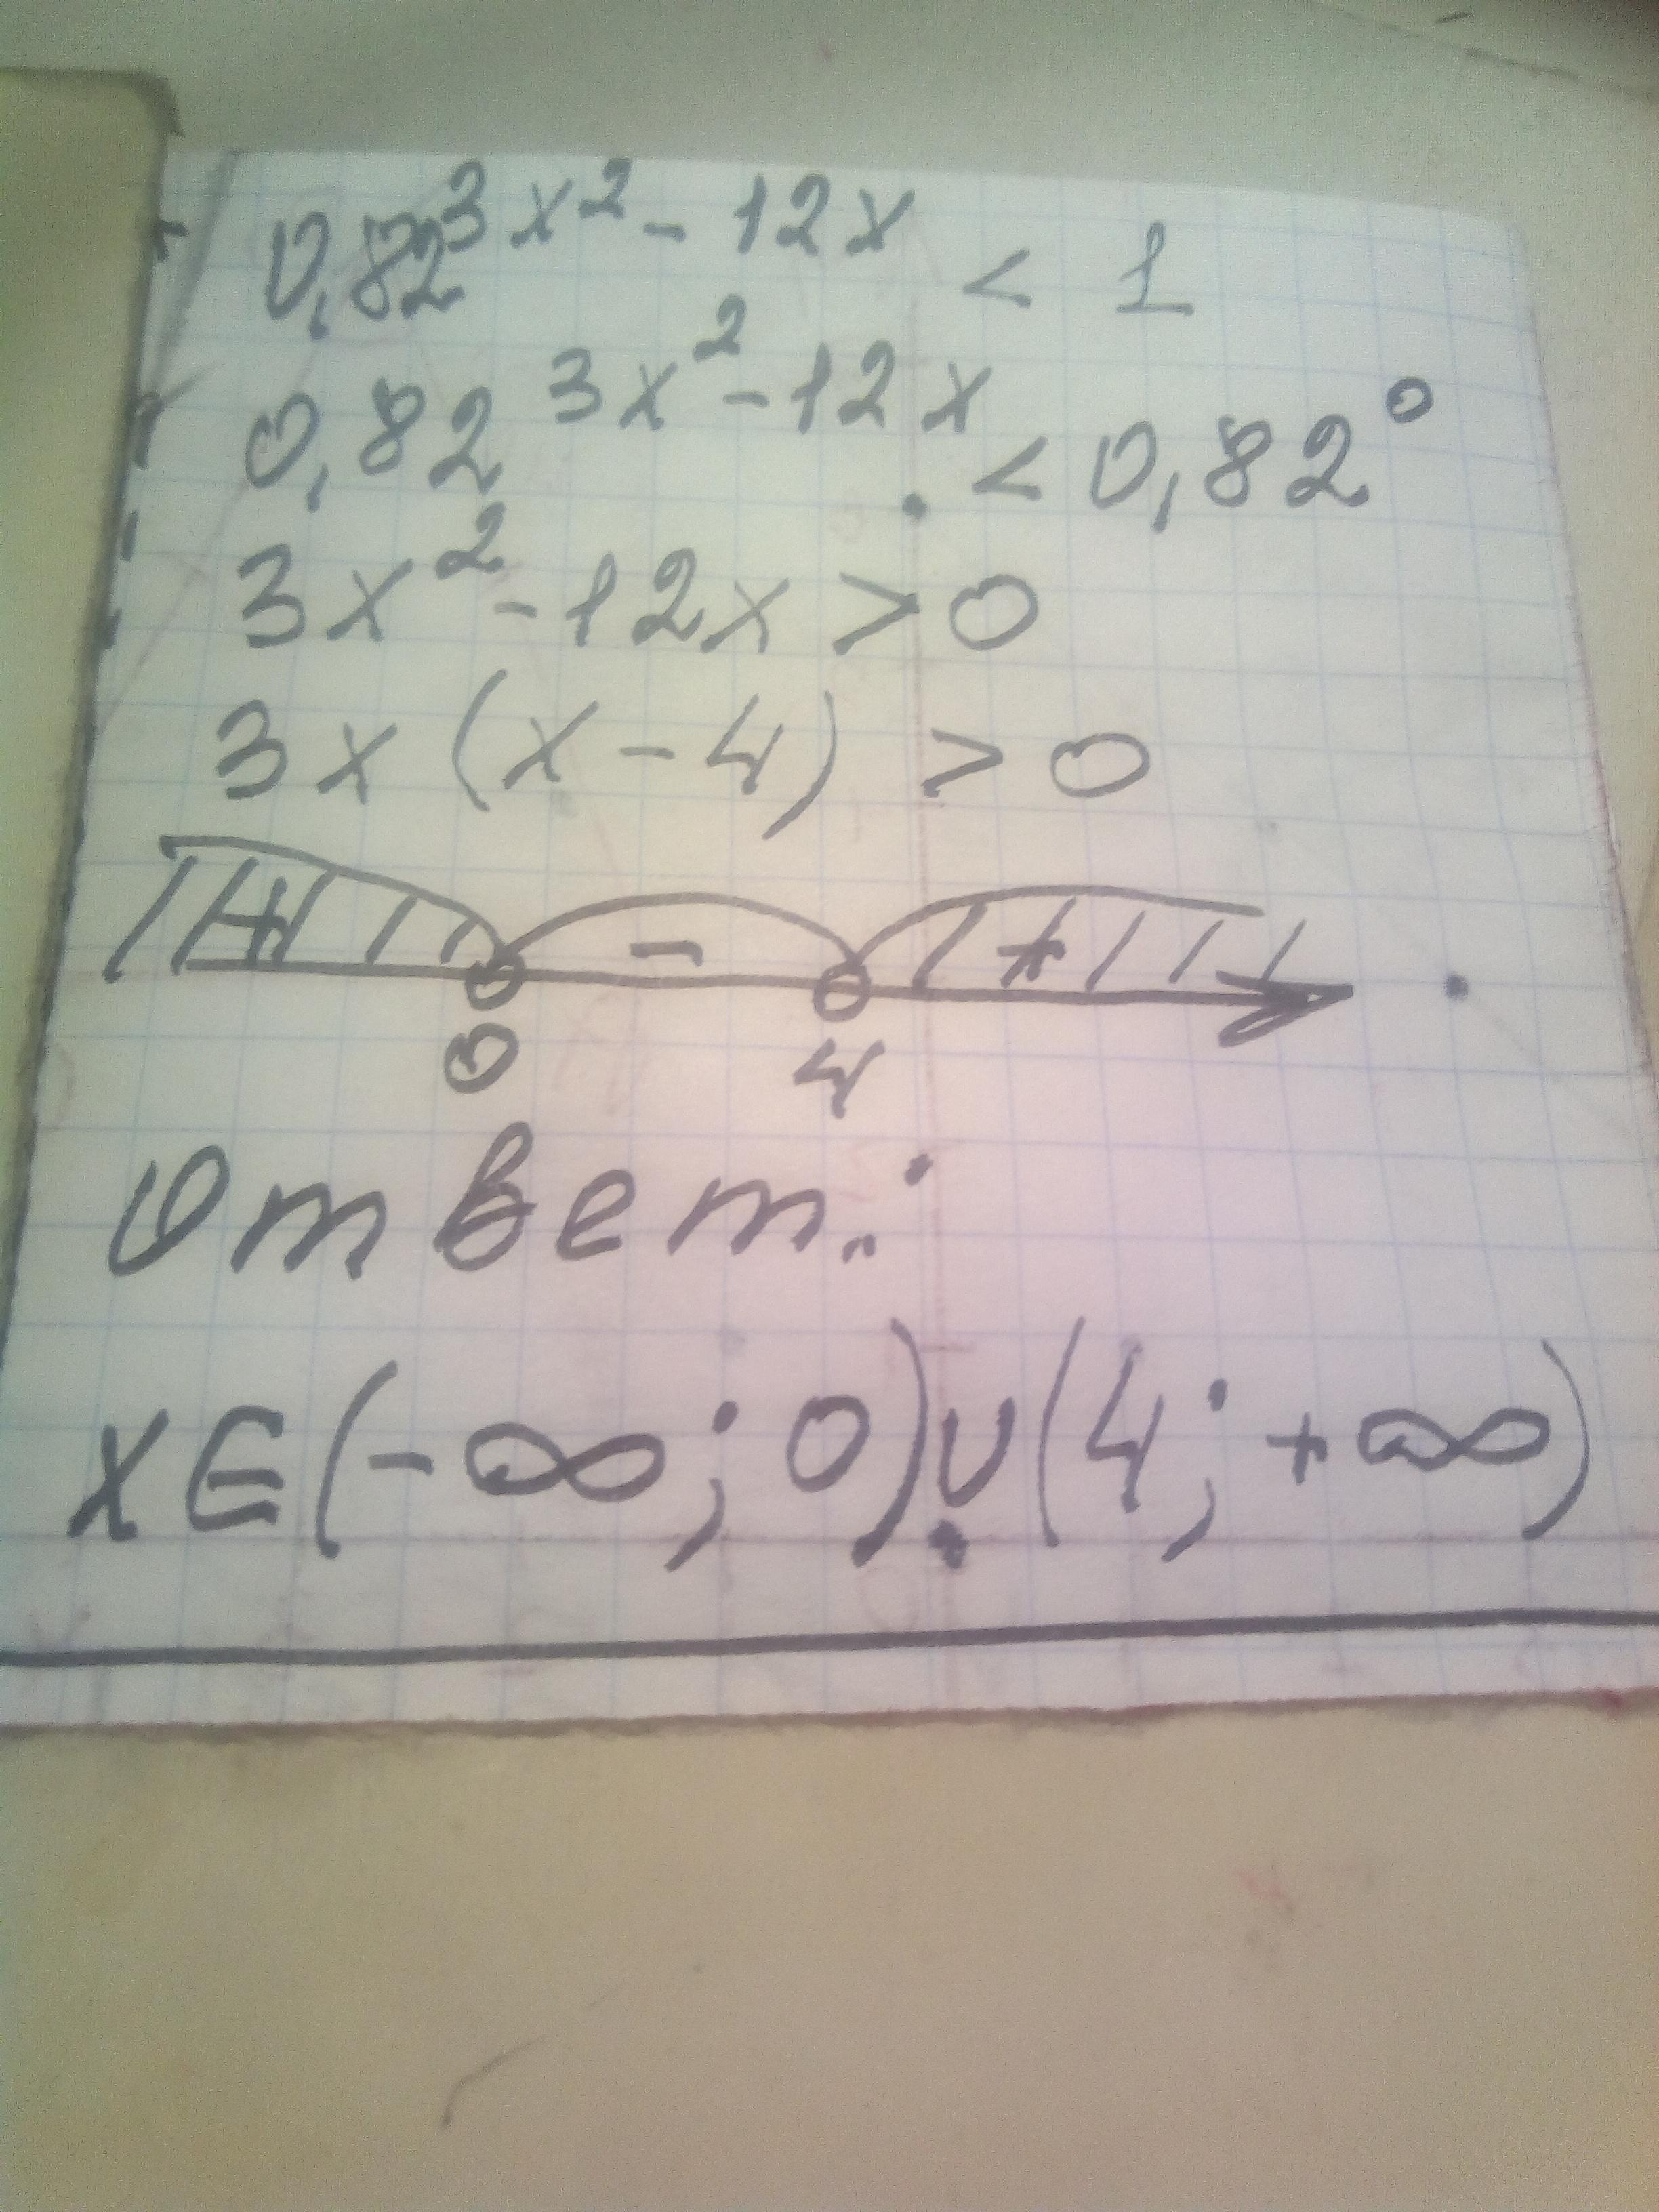 0,82^{3x² - 12x} < 1
0,82^{3x² - 12x} < 0,82⁰
3x² - 12x > 0
3x (x - 4) > 0
+ - +
0 4
Ответ:
x ∈ (-∞; 0) ∪ (4; +∞)